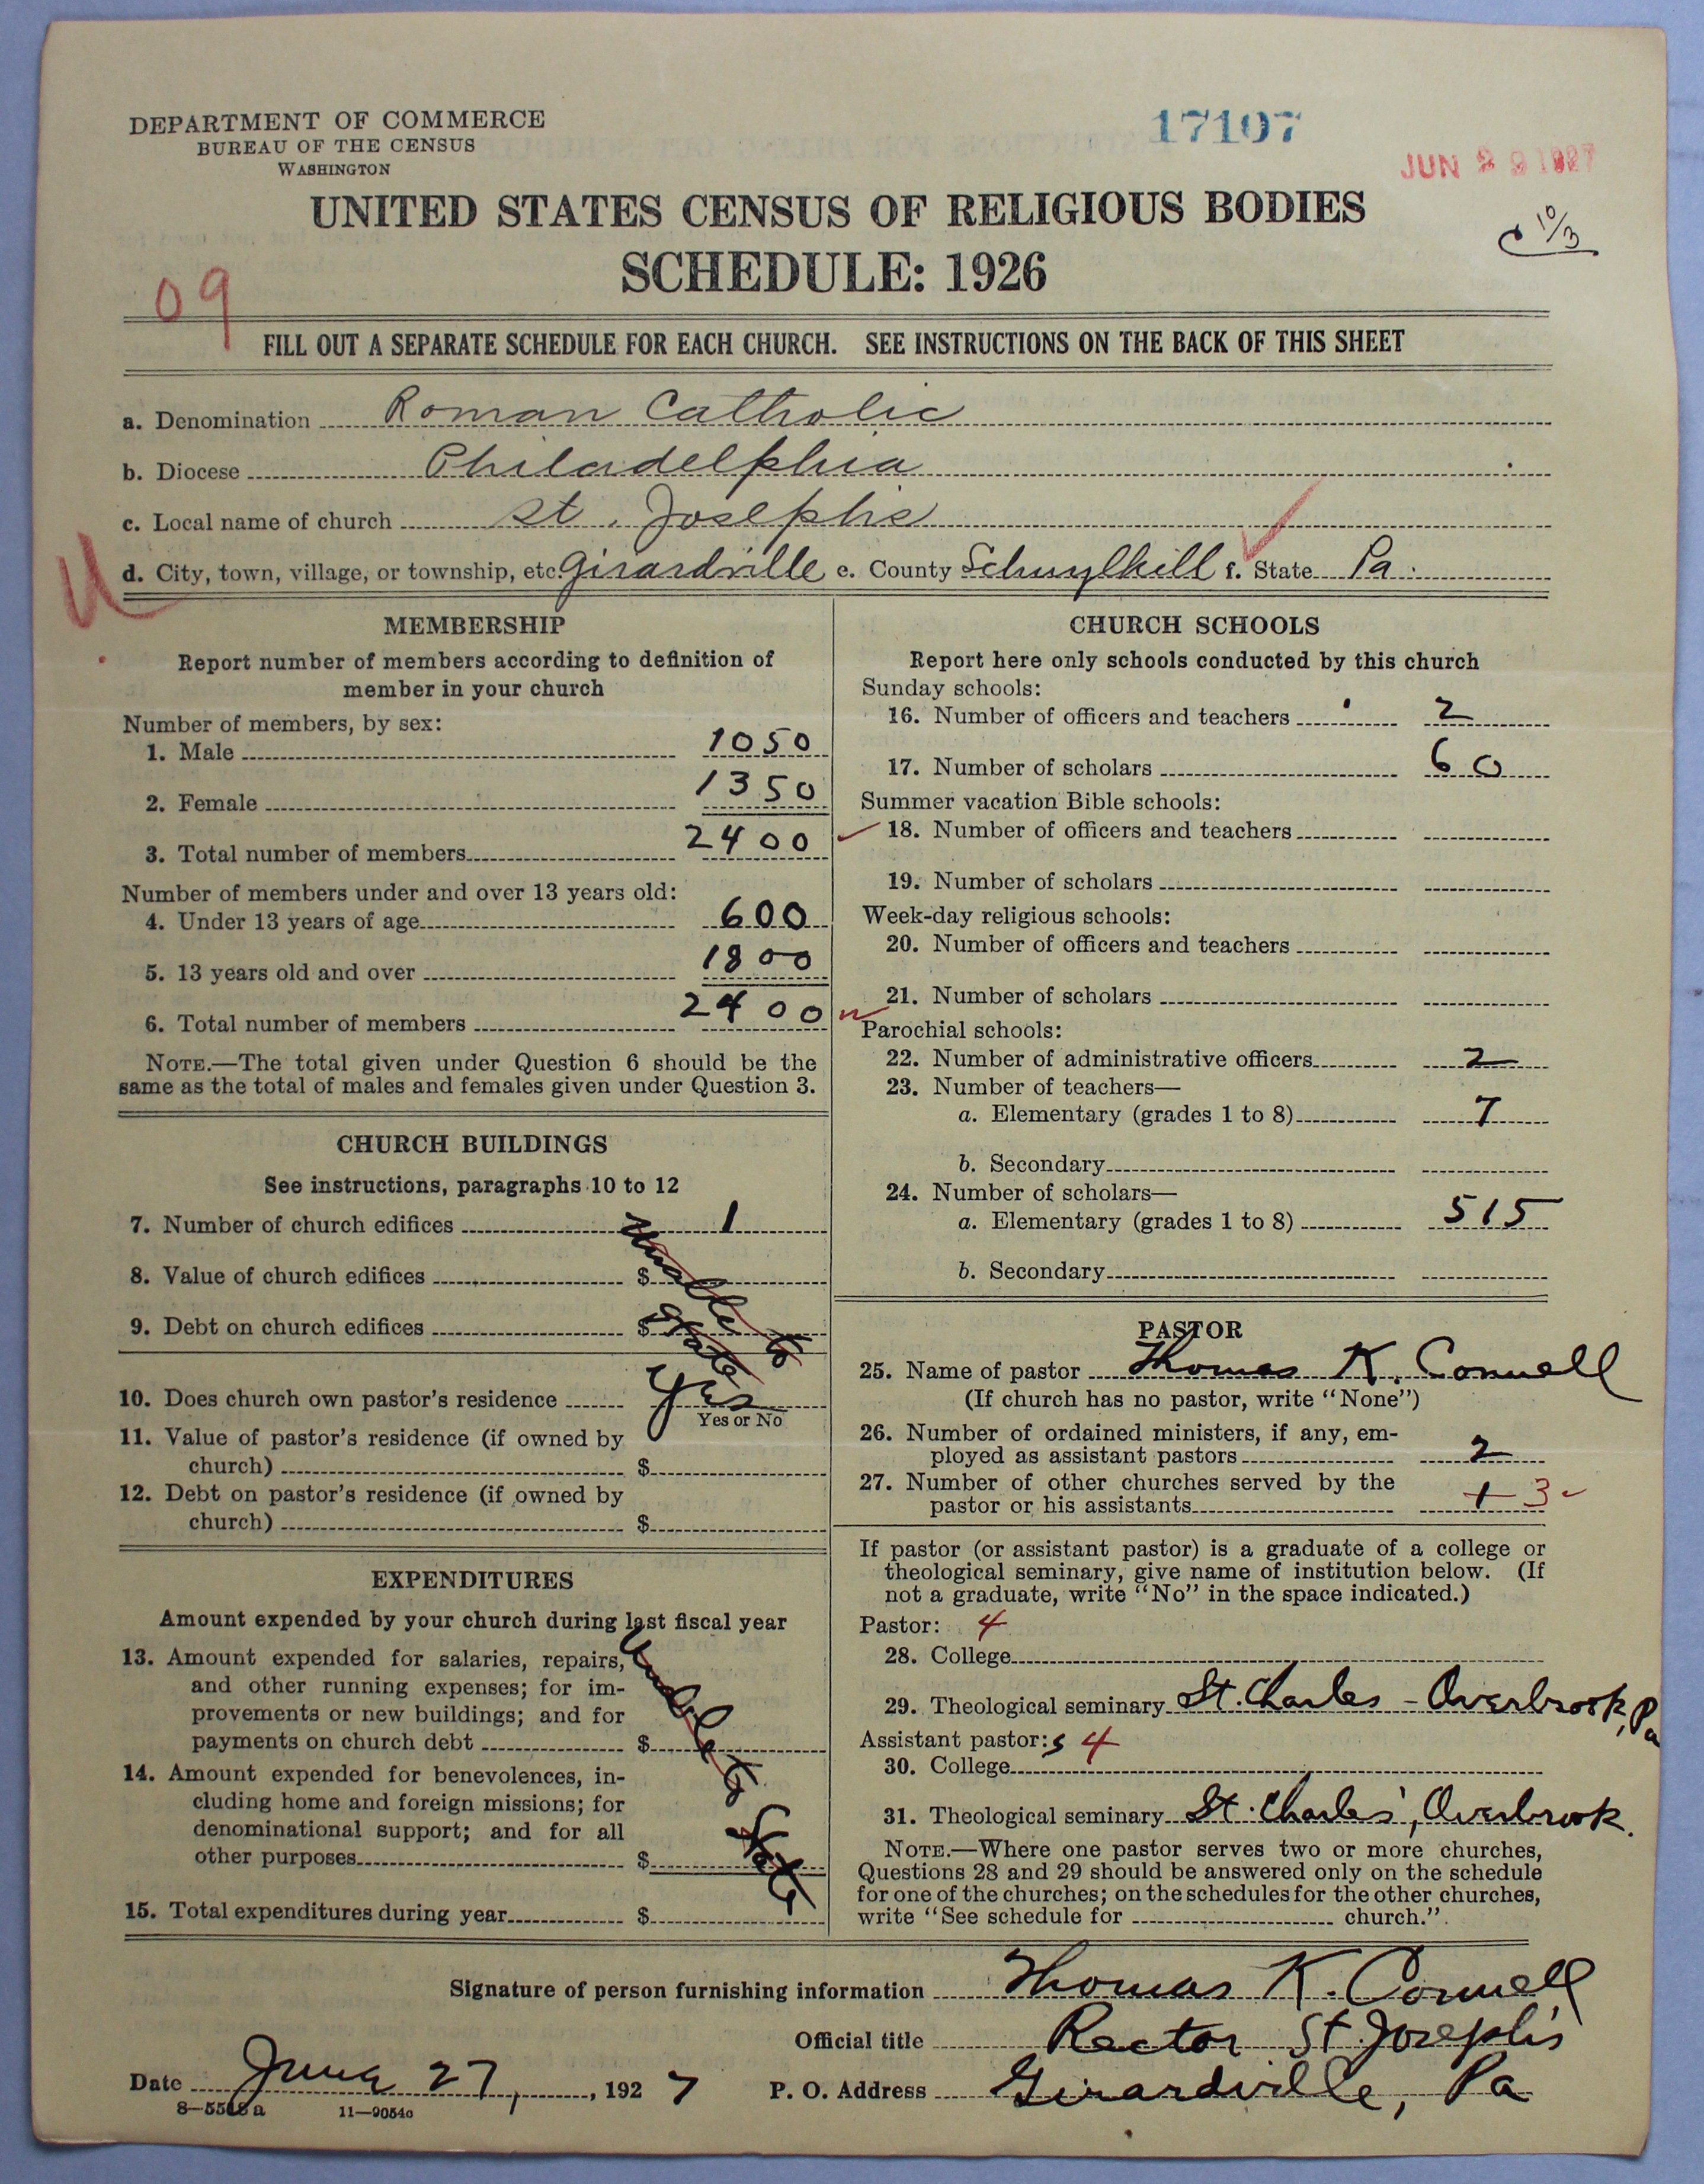 DEPARTMENT OF COMMERCE
BUREAU OF THE CENSUS
WASHINGTON
17107
JUN 29 1927
UNITED STATES CENSUS OF RELIGIOUS BODIES
SCHEDULE: 1926
C 10/3
09
FILL OUT A SEPARATE SCHEDULE FOR EACH CHURCH. SEE INSTRUCTIONS ON THE BACK OF THIS SHEET
a. Denomination Roman Catholic
b. Diocese Philadelphia
c. Local name of church St. Joseph's
d. City, town, village, or township, etc. Girardville e. County Schuylkill f. State Pa.
U
MEMBERSHIP
Report number of members according to definition of
member in your church
Number of members, by sex:
1. Male 1050
2. Female 1350
3. Total number of members 2400
Number of members under and over 13 years old:
4. Under 13 years of age 600
5. 13 years old and over 1800
6. Total number of members 2400
NOTE.—The total given under Question 6 should be the
same as the total of males and females given under Question 3.
CHURCH BUILDINGS
See instructions, paragraphs 10 to 12
7. Number of church edifices 1
8. Value of church edifices $
9. Debt on church edifices $
Unable to
state
10. Does church own pastor's residence Yes
Yes or No
11. Value of pastor's residence (if owned by
church) $
12. Debt on pastor's residence (if owned by
church) $
EXPENDITURES
Amount expended by your church during last fiscal year
13. Amount expended for salaries, repairs,
and other running expenses; for im-
provements or new buildings; and for
payments on church debt $
14. Amount expended for benevolences, in-
cluding home and foreign missions; for
denominational support; and for all
other purposes $
15. Total expenditures during year $
Unable to State
CHURCH SCHOOLS
Report here only schools conducted by this church
Sunday schools:
16. Number of officers and teachers 2
17. Number of scholars 60
Summer vacation Bible schools:
18. Number of officers and teachers
19. Number of scholars
Week-day religious schools:
20. Number of officers and teachers
21. Number of scholars
Parochial schools:
22. Number of administrative officers 2
23. Number of teachers—
a. Elementary (grades 1 to 8) 7
b. Secondary
24. Number of scholars—
a. Elementary (grades 1 to 8) 515
b. Secondary
PASTOR
25. Name of pastor Thomas K. Connell
(If church has no pastor, write "None")
26. Number of ordained ministers, if any, em-
ployed as assistant pastors 2
27. Number of other churches served by the
pastor or his assistants 1 3
If pastor (or assistant pastor) is a graduate of a college or
theological seminary, give name of institution below. (If
not a graduate, write "No" in the space indicated.)
Pastor: 4
28. College
29. Theological seminary St. Charles - Overbrook, Pa
Assistant pastor: s 4
30. College
31. Theological seminary St. Charles', Overbrook.
NOTE.—Where one pastor serves two or more churches,
Questions 28 and 29 should be answered only on the schedule
for one of the churches; on the schedules for the other churches,
write "See schedule for church."
Signature of person furnishing information Thomas K. Connell
Official title Rector St. Joseph's
Date June 27, 1927 P. O. Address Girardville, Pa
8—5518a 11—9054c